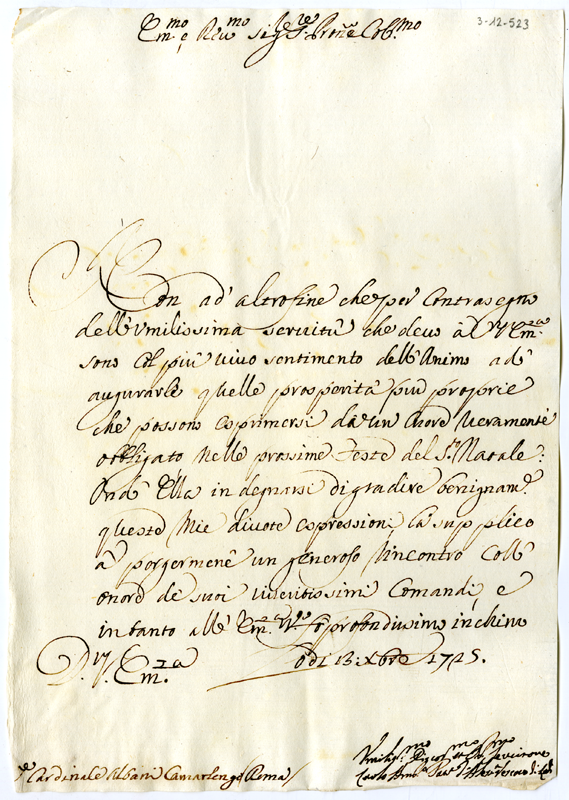 3-12-523
Em.mo e Rev.mo Sig.re Sig.re Prone Col.mo
Non ad' altro fine che per Contrasegno
dell'Vmilissima servitù che devo à V. Em.za
sono col più vivo sentimento dell'Animo ad'
augurarle quelle prosperità più proprie
che possono esprimersi da un Cuore veramente
obbligato nelle prossime Feste del S.to Natale:
Onde Ella in degnarsi di gradire benignam.e
queste Mie divote espressioni la supplico
à porgermene un generoso Rincontro coll'
onore de suoi veneratissimi Comandi, e
intanto all' Em.za V.ra fò profondissimo inchino
D. V. Em.za
Lodi 13. Xbre 1725.
Cardinale Albani Camarlengo Roma